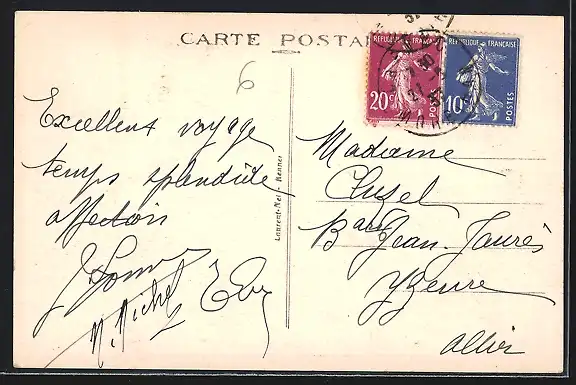 CARTE POSTALE
6
REPUBLIQUE FRANÇAISE
20c
POSTES
REPUBLIQUE FRANÇAISE
10c
POSTES
Excellent voyage
temps splendide
affection
M. Michel
Laurent-Nel - Rennes
Madame
Clusel
Bard Jean-Jaurès
Yzeure
Allier